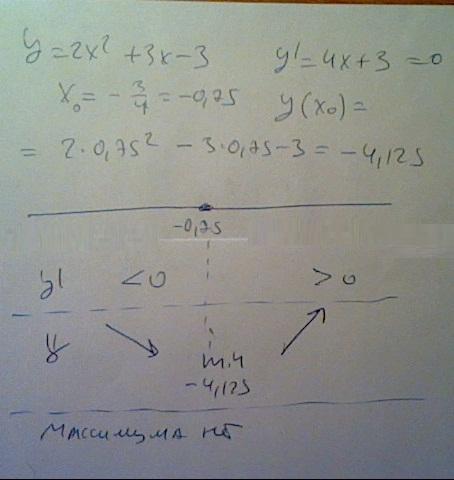 y = 2x² + 3x - 3 y' = 4x + 3 = 0
x₀ = - 3/4 = -0,75 y(x₀) =
= 2·0,75² - 3·0,75 - 3 = -4,125
-0,75
y' < 0 > 0
y min
-4,125
Максимума нет